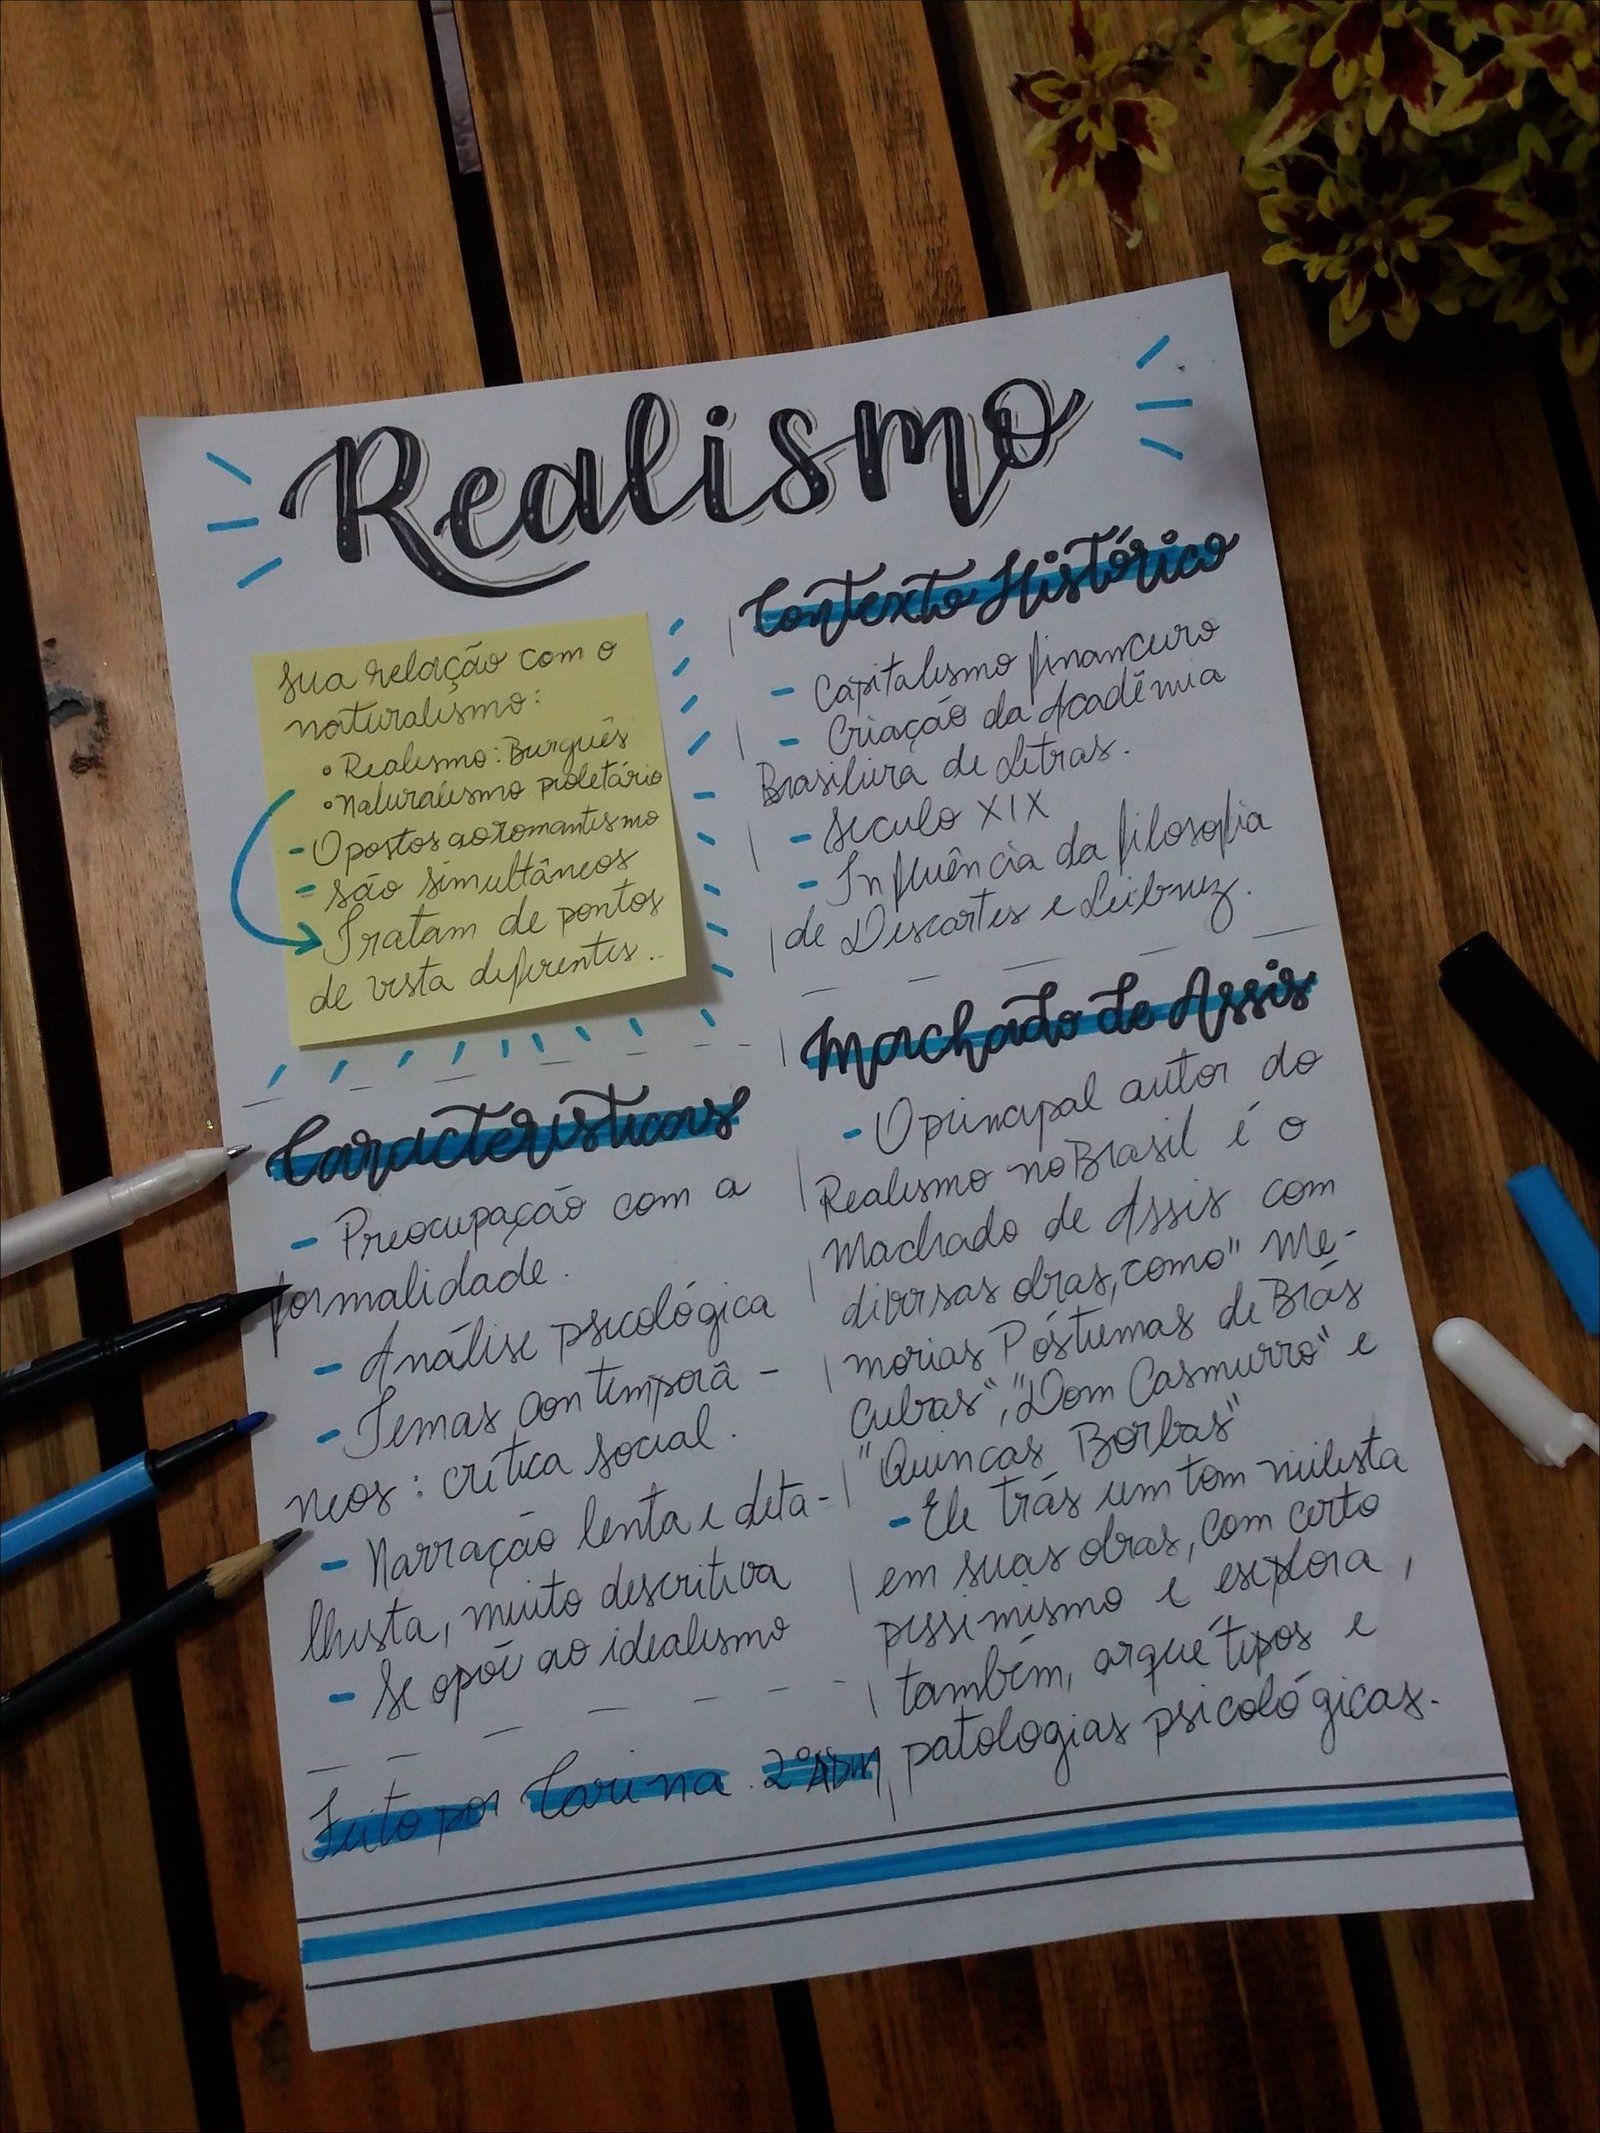 Realismo
Sua relação com o
naturalismo:
• Realismo: Burguês
• Naturalismo proletário
- Opostos ao romantismo
- são simultâneos
Tratam de pontos
de vista diferentes..
Características
- Preocupação com a
formalidade.
- Análise psicológica
- Temas contemporâ-
neos: crítica social.
- Narração lenta e deta-
lhista, muito descritiva
- Se opõe ao idealismo
Feito por Carina. 2º ADM
Contexto Histórico
- Capitalismo financeiro
- Criação da Acadêmia
Brasileira de Letras.
- Século XIX
- Influência da filosofia
de Descartes e Leibniz.
Machado de Assis
- O principal autor do
Realismo no Brasil é o
Machado de Assis com
diversas obras, como "Me-
morias Póstumas de Brás
Cubas", "Dom Casmurro" e
"Quincas Borbas"
- Ele trás um tom niilista
em suas obras, com certo
pessimismo e explora,
também, arquétipos e
patologias psicológicas.